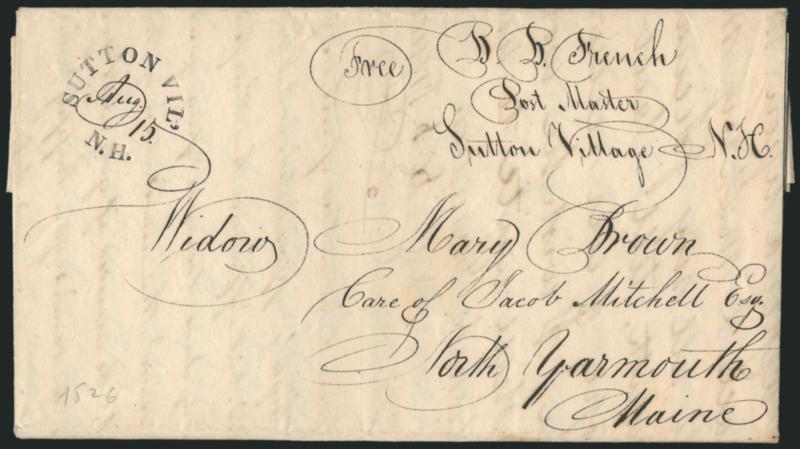 SUTTON VIL.
Aug.
15.
N.H.
Free
B. B. French
Post Master
Sutton Village N.H.
Widow Mary Brown
Care of Jacob Mitchell Esq.
North Yarmouth
Maine
1526